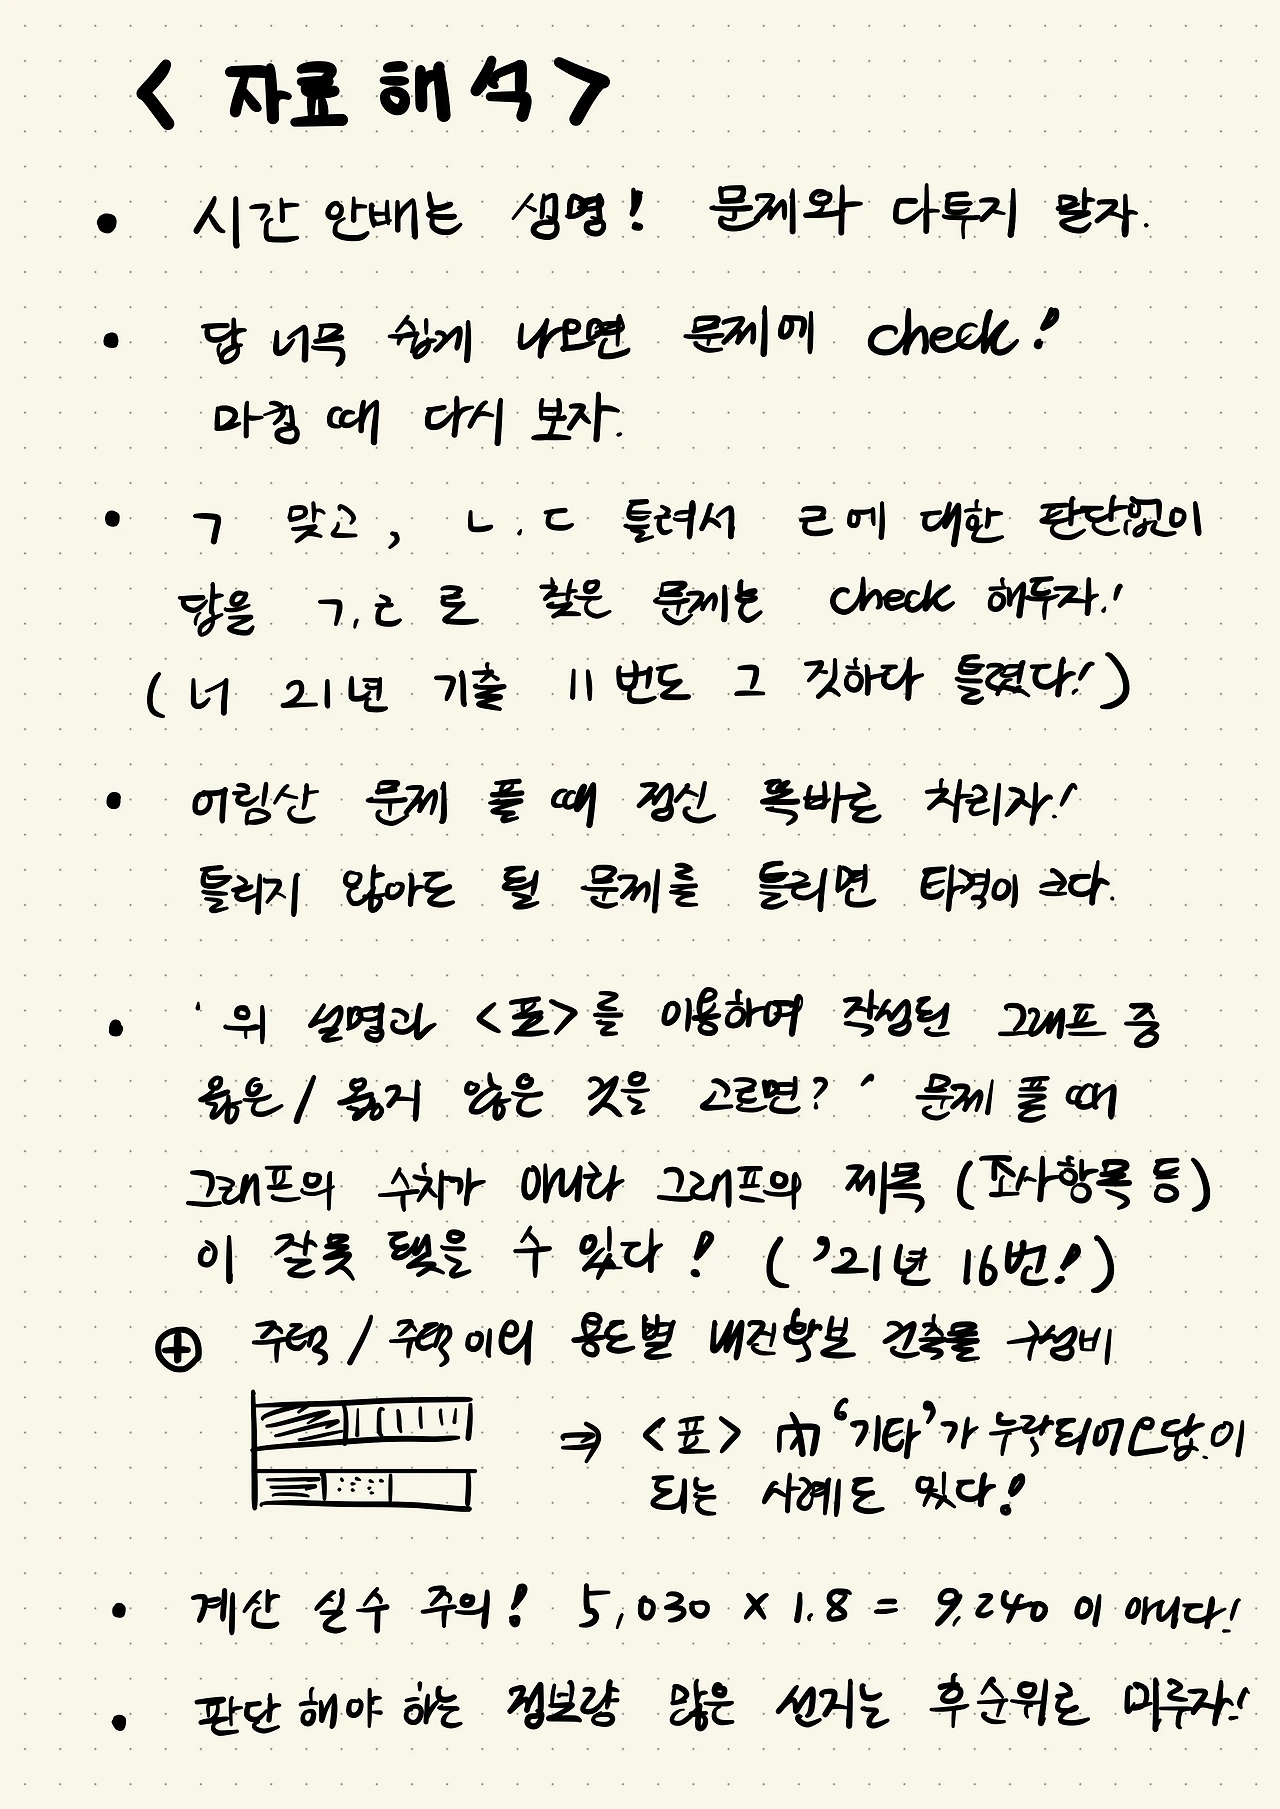 < 자료 해석 >
• 시간 안배는 생명! 문제와 다투지 말자.
• 답 너무 쉽게 나오면 문제에 check!
마킹 때 다시 보자.
• ㄱ 맞고, ㄴ.ㄷ 틀려서 ㄹ에 대한 판단없이
답을 ㄱ,ㄹ로 찾은 문제는 check 해두자!
(너 21년 기출 11번도 그 짓하다 틀렸다!)
• 어림산 문제 풀 때 정신 똑바로 차리자!
틀리지 않아도 될 문제를 틀리면 타격이 크다.
• '위 설명과 <표>를 이용하여 작성된 그래프 중
옳은/옳지 않은 것을 고르면?' 문제 풀 때
그래프의 수치가 아니라 그래프의 제목 (조사항목 등)
이 잘못 됐을 수 있다! ('21년 16번!)
⊕ 주택/주택이외 용도별 내진확보 건축률 구성비
⇒ <표> 內 '기타'가 누락되어 오답이
되는 사례도 있다!
• 계산 실수 주의! 5,030 × 1.8 = 9,240 이 아니다!
• 판단해야 하는 정보량 많은 선지는 후순위로 미루자!